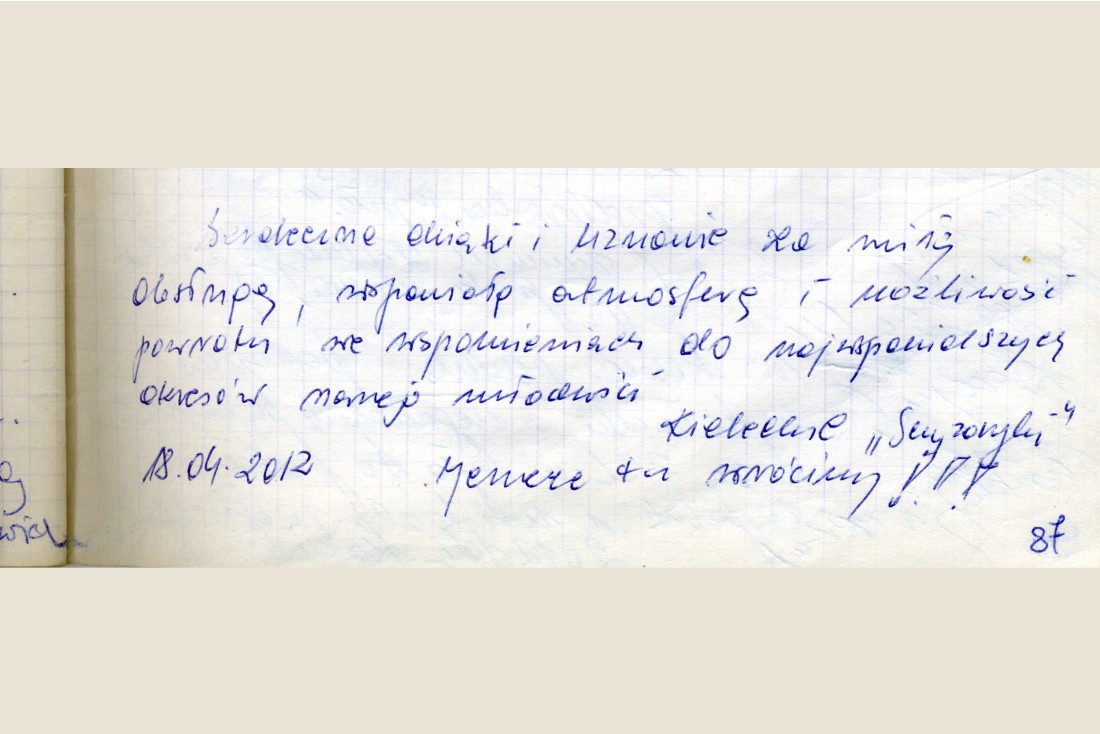 Serdeczne dzięki i uznanie za miłą
obsługę, wspaniałą atmosferę i możliwość
powrotu we wspomnieniach do najwspanialszych
okresów naszej młodości
Kieleckie
18.04.2012 Jeszcze tu wrócimy !!!
87